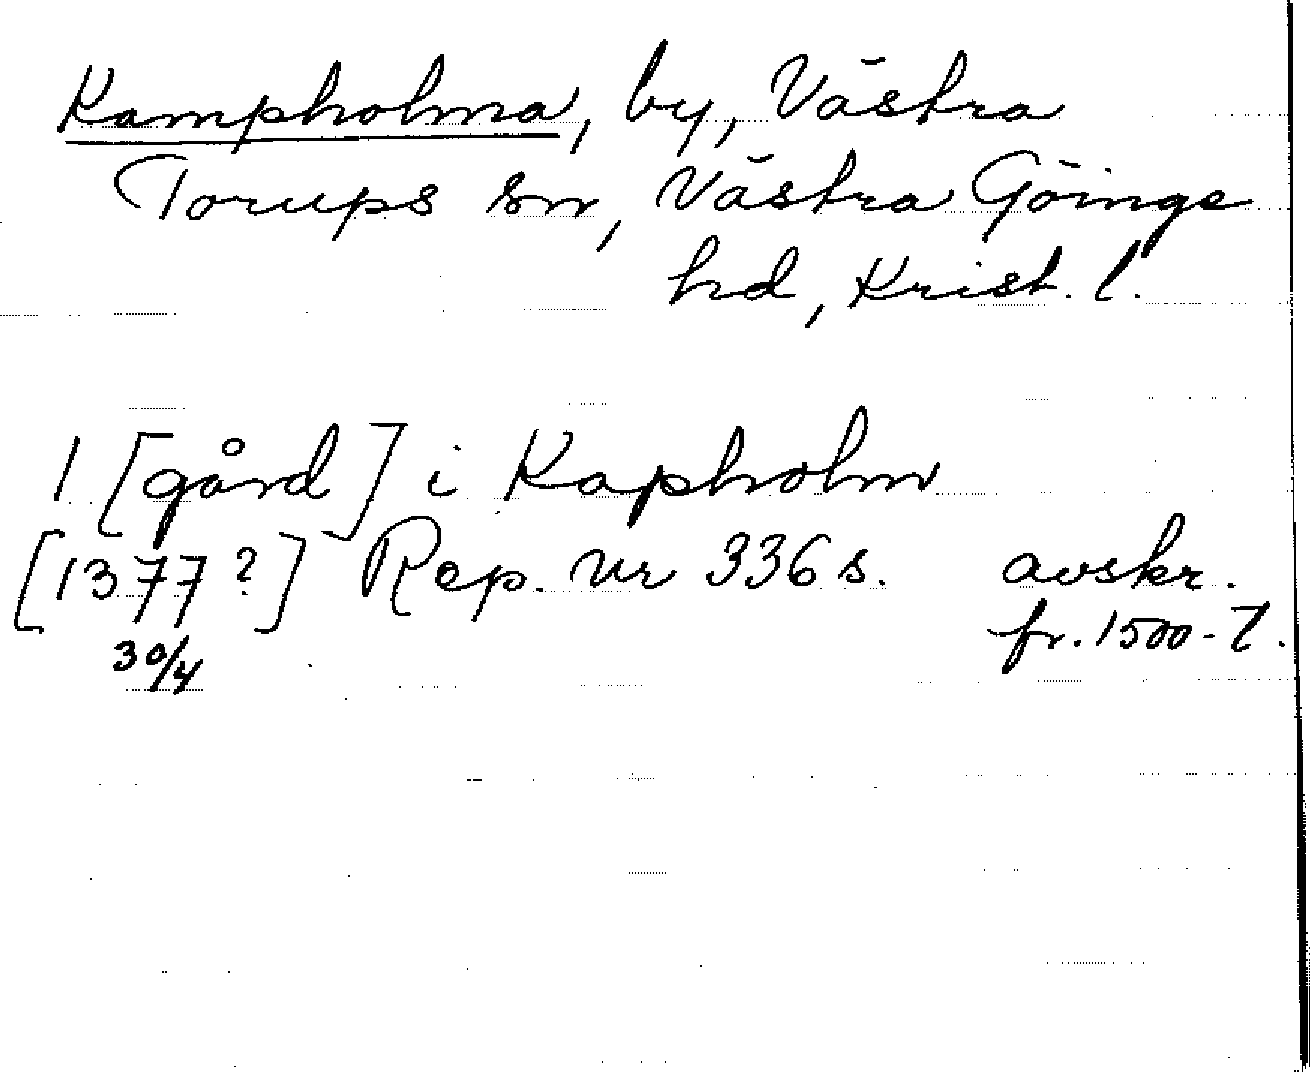 Kampholma, by, Västra
Torups sn, Västra Göinge
hd, Krist. l.
1 [gård] i Kapholm
[1377?] Rep. nr 336 s. avskr.
30/4 fr. 1500-t.